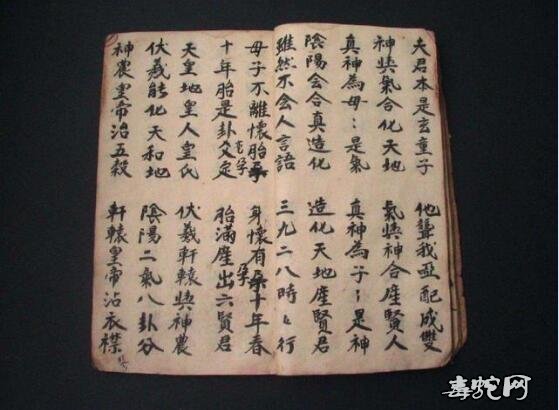 夫君本是玄童子 他聾我啞配成雙
神與氣合化天地 氣與神合産賢人
真神為母〻是氣 真神為子〻是神
陰陽会合真造化 造化天地産賢君
雖然不会人言語 三九二八時〻行
母子不離懷胎孕 身懷有孕十年春
十年胎是卦爻定 胎滿産出六賢君
天皇地皇人皇氏 伏羲軒轅與神農
伏羲能化天和地 陰陽二氣八卦分
神農皇帝治五穀 軒轅皇帝沾衣襟
毒蛇网